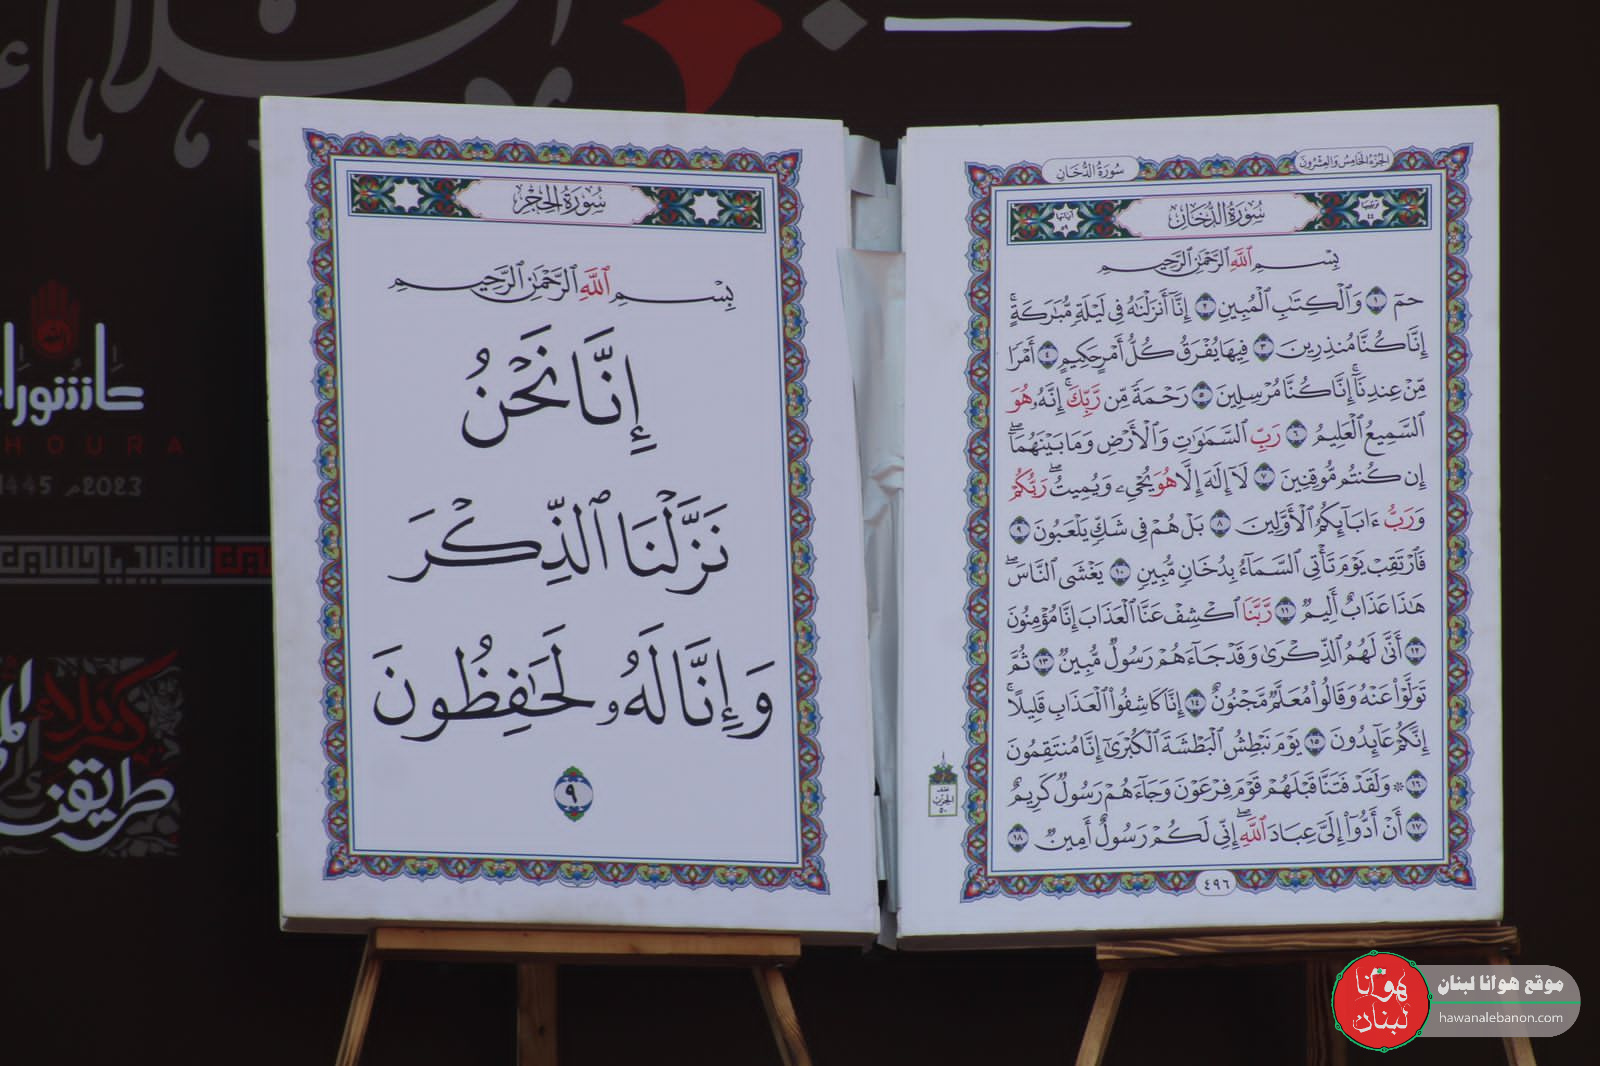 عاشوراء
HOURA
1445 2023م
سُورَةُ الحِجْرِ
بِسْمِ ٱللَّهِ ٱلرَّحْمَٰنِ ٱلرَّحِيمِ
إِنَّا نَحْنُ
نَزَّلْنَا ٱلذِّكْرَ
وَإِنَّا لَهُۥ لَحَٰفِظُونَ
٩
الجُزْءُ الخَامِسُ وَالعِشْرُونَ
سُورَةُ الدُّخَانِ
ترتيبها ٤٤
سُورَةُ الدُّخَانِ
آياتها ٥٩
بِسْمِ ٱللَّهِ ٱلرَّحْمَٰنِ ٱلرَّحِيمِ
حمٓ ١ وَٱلْكِتَٰبِ ٱلْمُبِينِ ٢ إِنَّآ أَنزَلْنَٰهُ فِى لَيْلَةٍ مُّبَٰرَكَةٍۚ
إِنَّا كُنَّا مُنذِرِينَ ٣ فِيهَا يُفْرَقُ كُلُّ أَمْرٍ حَكِيمٍ ٤ أَمْرًا
مِّنْ عِندِنَآۚ إِنَّا كُنَّا مُرْسِلِينَ ٥ رَحْمَةً مِّن رَّبِّكَۚ إِنَّهُۥ هُوَ
ٱلسَّمِيعُ ٱلْعَلِيمُ ٦ رَبِّ ٱلسَّمَٰوَٰتِ وَٱلْأَرْضِ وَمَا بَيْنَهُمَآۖ
إِن كُنتُم مُّوقِنِينَ ٧ لَآ إِلَٰهَ إِلَّا هُوَ يُحْىِۦ وَيُمِيتُۖ رَبُّكُمْ
وَرَبُّ ءَابَآئِكُمُ ٱلْأَوَّلِينَ ٨ بَلْ هُمْ فِى شَكٍّ يَلْعَبُونَ ٩
فَٱرْتَقِبْ يَوْمَ تَأْتِى ٱلسَّمَآءُ بِدُخَانٍ مُّبِينٍ ١٠ يَغْشَى ٱلنَّاسَۖ
هَٰذَا عَذَابٌ أَلِيمٌ ١١ رَّبَّنَا ٱكْشِفْ عَنَّا ٱلْعَذَابَ إِنَّا مُؤْمِنُونَ
١٢ أَنَّىٰ لَهُمُ ٱلذِّكْرَىٰ وَقَدْ جَآءَهُمْ رَسُولٌ مُّبِينٌ ١٣ ثُمَّ
تَوَلَّوْا۟ عَنْهُ وَقَالُوا۟ مُعَلَّمٌ مَّجْنُونٌ ١٤ إِنَّا كَاشِفُوا۟ ٱلْعَذَابِ قَلِيلًاۚ
إِنَّكُمْ عَآئِدُونَ ١٥ يَوْمَ نَبْطِشُ ٱلْبَطْشَةَ ٱلْكُبْرَىٰٓ إِنَّا مُنتَقِمُونَ
١٦ ۞ وَلَقَدْ فَتَنَّا قَبْلَهُمْ قَوْمَ فِرْعَوْنَ وَجَآءَهُمْ رَسُولٌ كَرِيمٌ
١٧ أَنْ أَدُّوٓا۟ إِلَىَّ عِبَادَ ٱللَّهِۖ إِنِّى لَكُمْ رَسُولٌ أَمِينٌ ١٨
٤٩٦
هوانا لبنان
موقع هوانا لبنان
hawanalebanon.com